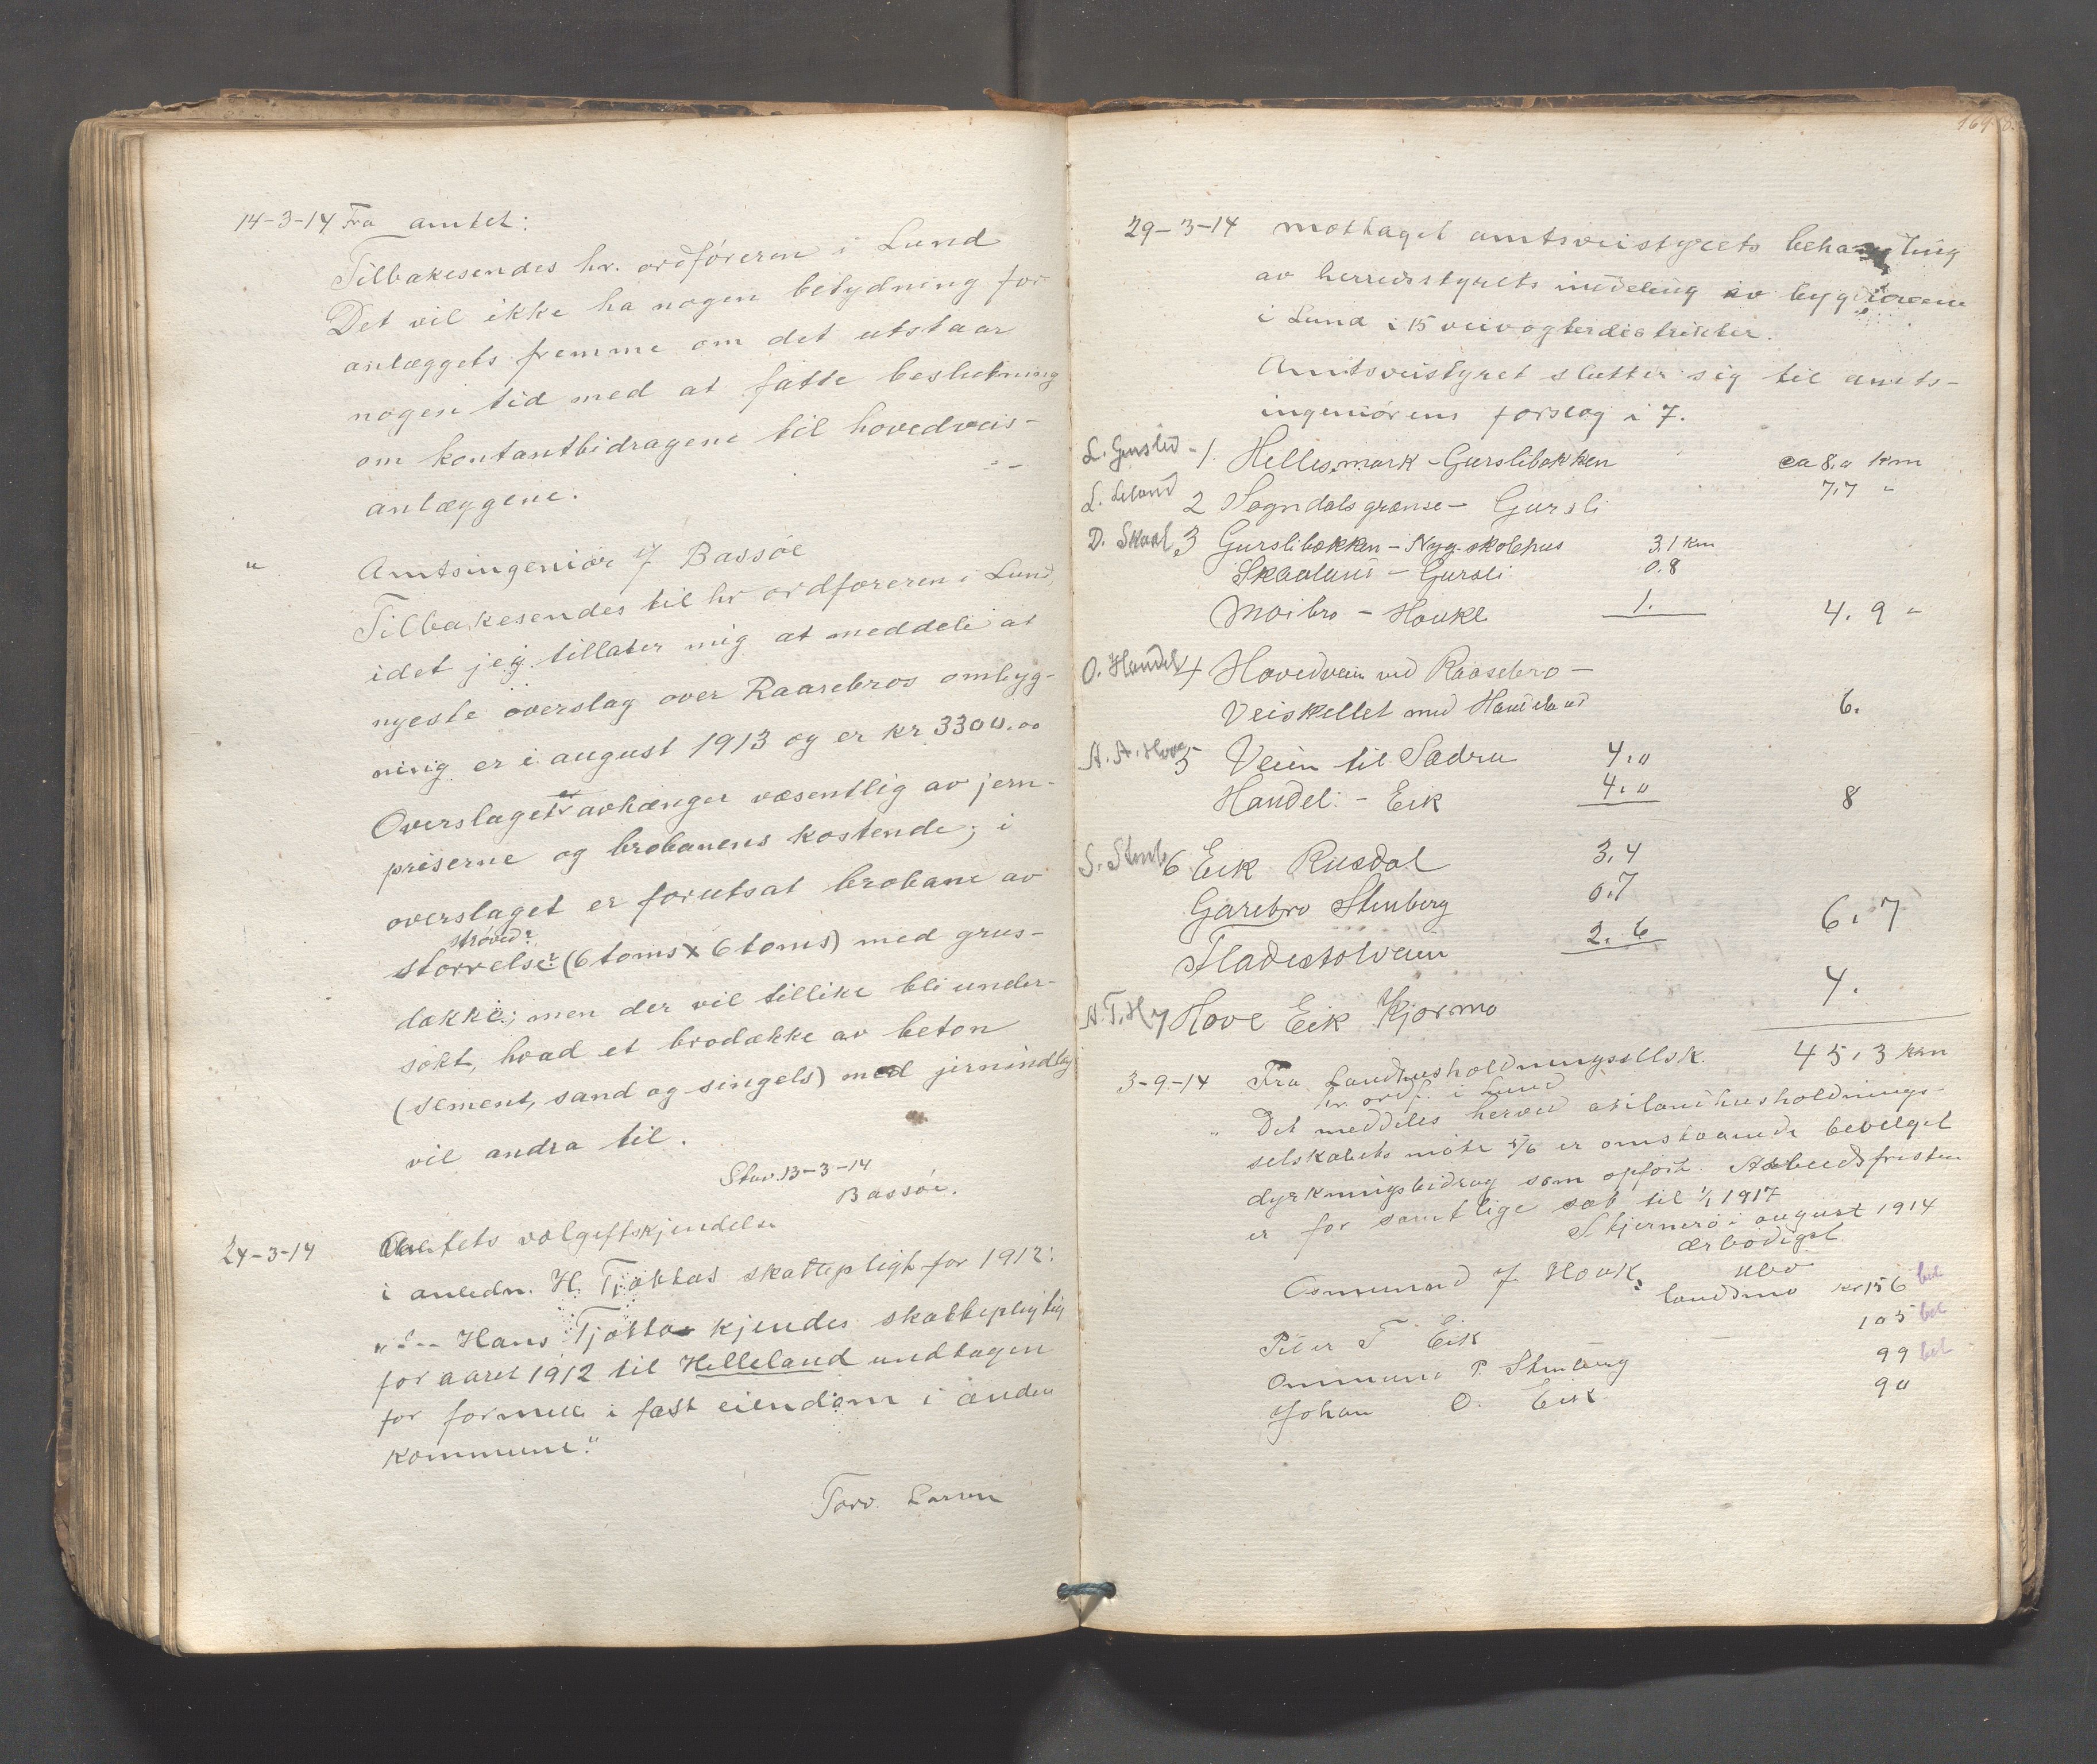 14-3-14 Fra amtet:
Tilbakesendes hr. ordføreren i Lund
Det vil ikke ha nogen betydning for
anlæggets fremme om det utstaar
nogen tid med at fatte beslutning
om kontantbidragene til hovedveis-
anlæggene.
" Amtsingeniør J Bassøe
Tilbakesendes til hr ordføreren i Lund,
idet jeg tillater mig at meddele at
nyeste overslag over Raasebros ombyg-
ning er i august 1913 og er kr 3300.00
Overslaget avhænger væsentlig av jern-
priserne og brobanens kostende; i
overslaget er forutsat brobane av
strøved?
størrelse? (6 toms x 6 toms) med grus-
dække; men der vil tillike bli under-
søkt, hvad et brodække av beton
(sement, sand og singels) med jernindlæg
vil andra til.
Stav. 13-3-14
Bassøe.
24-3-14 Amtets valgeftskjendelse
i anledn. H. Tjøttas skattepligt for 1912:
"-"-- Hans Tjøtta kjendes skattepligtig
for aaret 1912 til Helleland undtagen
for formue i fast eiendom i anden
kommune."
Torv. Larsen
164
29-3-14 mottaget amtsveistyrets behandling
av herredsstyrets inddeling av bygdeveiene
i Lund i 15 veivogterdistrikter.
Amtsveistyret slutter sig til amts-
ingeniørens forslag i 7.
L. Gursled - 1. Hellesmark - Gurslibakken ca 8,0 km
L. Leland 2 Sogndalsgrænse - Gursli 7,7 "
D. Skaal 3 Gurslibakken - Nyg. skolehus 3,1 km
Skaaland - Gursli 0.8
Moibro - Hauke 1. 4.9 "
O. Handel 4 Hovedveien ved Raasebro -
Veiskellet med Handeland 6.
A. A. Hove 5 Veien til Sædra 4,0
Handel. - Eik 4,0 8
S. Stenb 6 Eik Rusdal 3,4
Garebro Stenberg 0.7
Fladestolveien 2.6 6,7
A. T. H 7 Hove Eik Kjørmo 4.
45,3 km
3-9-14 Fra Landhusholdningsellsk.
hr. ordf. i Lund
" Det meddeles herved at i landhusholdnings-
selskabets møte 5/6 er omstaaende bevilget
dyrkningsbidrag som opført. Arbeidsfristen
er for samtlige sat til 1/1 1917
Stjernerø i august 1914
ærbødigst
Osmund J Hauk. landsmo kr 156 bet
Peter T Eik 105 bet
Ommund P. Stenberg 99 bet
Johan O. Eik 90